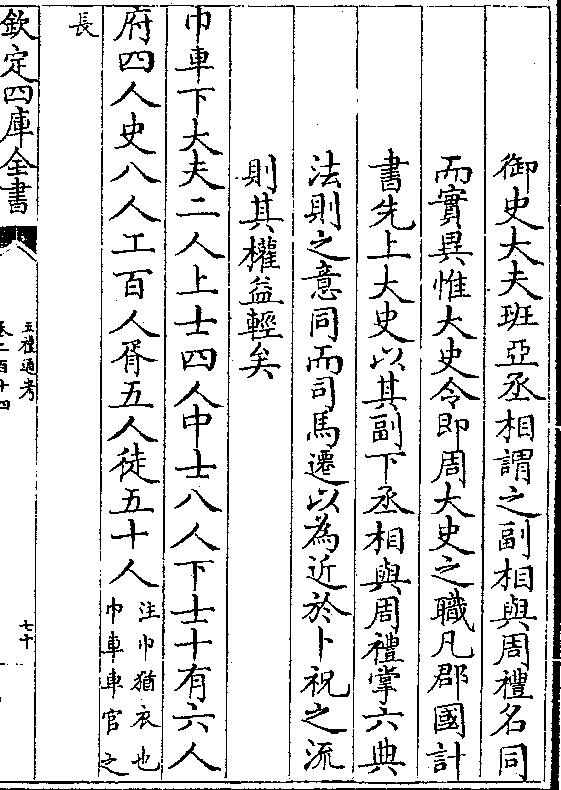 御史大夫班亞丞相謂之副相與周禮名同
而實異惟大史令即周大史之職凡郡國計
書先上大史以其副下丞相與周禮掌六典
法則之意同而司馬遷以為近於卜祝之流
則其權益輕矣
巾車下大夫二人上士四人中士八人下士十有六人
府四人史八人工百人胥五人徒五十人
注巾猶衣也
巾車車官之
長
欽定四庫全書
五禮通考
卷二百十四
七十